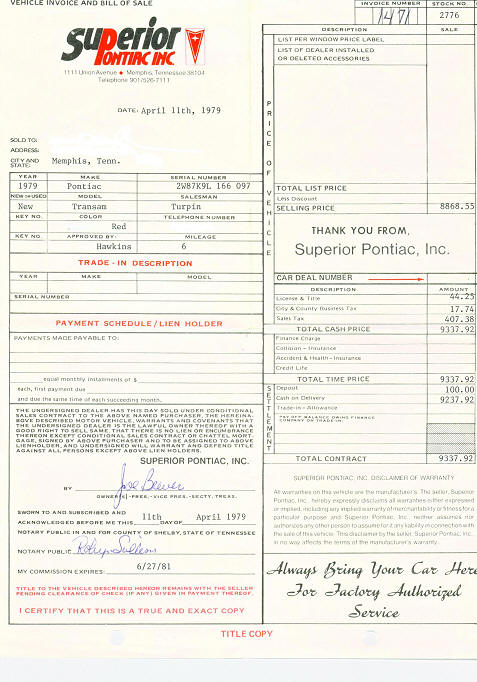 VEHICLE INVOICE AND BILL OF SALE
INVOICE NUMBER STOCK NO.
1471 2776
Superior
PONTIAC INC
1111 Union Avenue ● Memphis, Tennessee 38104
Telephone 901/526-7111
DATE: April 11th, 1979
SOLD TO:
ADDRESS:
CITY AND STATE: Memphis, Tenn.
YEAR MAKE SERIAL NUMBER
1979 Pontiac 2W87K9L 166 097
NEW OR USED MODEL SALESMAN
New Transam Turpin
KEY NO. COLOR TELEPHONE NUMBER
Red
KEY NO. APPROVED BY: MILEAGE
Hawkins 6
TRADE-IN DESCRIPTION
YEAR MAKE MODEL
SERIAL NUMBER
PAYMENT SCHEDULE/LIEN HOLDER
PAYMENTS MADE PAYABLE TO:
equal monthly instalments of $
each, first payment due
and due the same time of each succeeding month.
THE UNDERSIGNED DEALER HAS THIS DAY SOLD UNDER CONDITIONAL
SALES CONTRACT TO THE ABOVE NAMED PURCHASER, THE HEREINA-
BOVE DESCRIBED MOTOR VEHICLE, WARRANTS AND COVENANTS THAT
THE UNDERSIGNED DEALER IS THE LAWFUL OWNER THEREOF WITH A
GOOD RIGHT TO SELL SAME, THAT THERE IS NO LIEN OR ENCUMBRANCE
THEREON EXCEPT CONDITIONAL SALES CONTRACT OR CHATTEL MORT-
GAGE, SIGNED BY ABOVE PURCHASER AND TO BE ASSIGNED TO ABOVE
LIENHOLDER, AND UNDERSIGNED WILL WARRANT AND DEFEND TITLE
AGAINST ALL PERSONS EXCEPT ABOVE LIEN HOLDERS.
SUPERIOR PONTIAC, INC.
BY Joe Beever
OWNER(S)-PRES.-VICE PRES.-SECTY, TREAS.
SWORN TO AND SUBSCRIBED AND
ACKNOWLEDGED BEFORE ME THIS 11th DAY OF April 1979
NOTARY PUBLIC IN AND FOR COUNTY OF SHELBY, STATE OF TENNESSEE
NOTARY PUBLIC
MY COMMISSION EXPIRES: 6/27/81
TITLE TO THE VEHICLE DESCRIBED HEREON REMAINS WITH THE SELLER
PENDING CLEARANCE OF CHECK (IF ANY) GIVEN IN PAYMENT THEREOF.
I CERTIFY THAT THIS IS A TRUE AND EXACT COPY
DESCRIPTION SALE
LIST PER WINDOW PRICE LABEL
LIST OF DEALER INSTALLED
OR DELETED ACCESSORIES
PRICE OF VEHICLE
TOTAL LIST PRICE
Less Discount
SELLING PRICE 8868.55
THANK YOU FROM,
Superior Pontiac, Inc.
CAR DEAL NUMBER
DESCRIPTION AMOUNT
License & Title 44.25
City & County Business Tax 17.74
Sales Tax 407.38
TOTAL CASH PRICE 9337.92
Finance Charge
Collision - Insurance
Accident & Health - Insurance
Credit Life
TOTAL TIME PRICE 9337.92
SETTLEMENT
Deposit 100.00
Cash on Delivery 9237.92
Trade-in - Allowance
PAY OFF BALANCE OWING FINANCE
COMPANY ON TRADE-IN:
TOTAL CONTRACT 9337.92
SUPERIOR PONTIAC, INC. DISCLAIMER OF WARRANTY
All warranties on this vehicle are the manufacturer's. The seller, Superior
Pontiac, Inc., hereby expressly disclaims all warranties either expressed
or implied, including any implied warranty of merchantability or fitness for a
particular purpose and Superior Pontiac, Inc. neither assumes nor
authorizes any other person to assume for it any liability in connection with
the sale of this vehicle. This disclaimer by the seller, Superior Pontiac, Inc.
in no way affects the terms of the manufacturer's warranty.
Always Bring Your Car Here
For Factory Authorized
Service
TITLE COPY